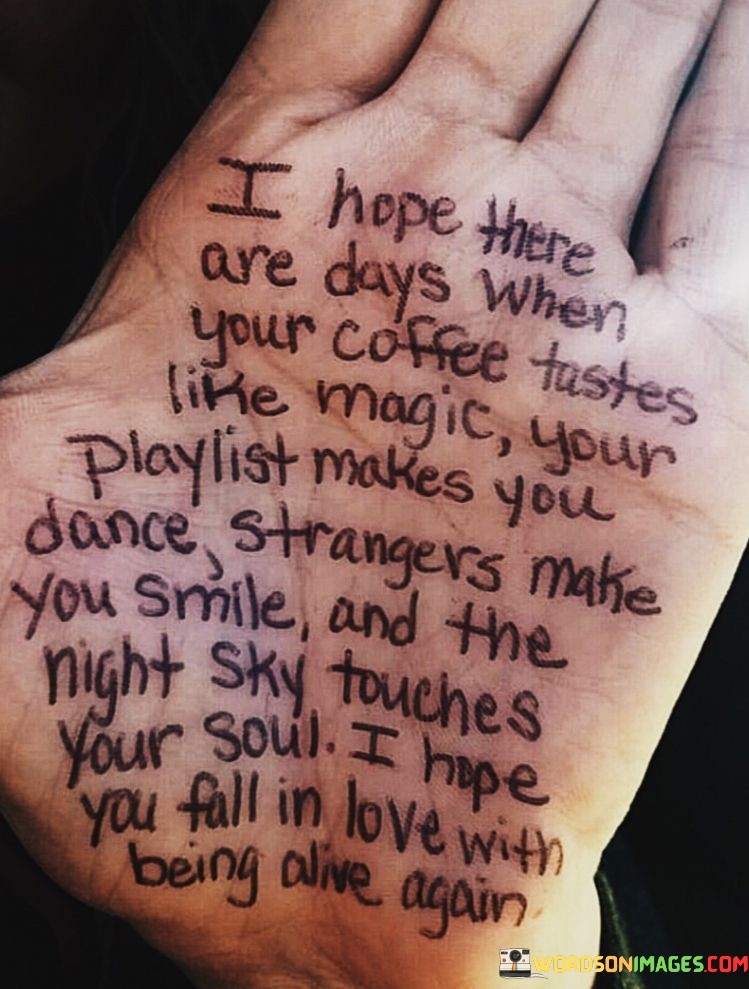 I hope there
are days when
your coffee tastes
like magic, your
playlist makes you
dance, strangers make
you smile, and the
night sky touches
your soul. I hope
you fall in love with
being alive again
WORDSONIMAGES.COM